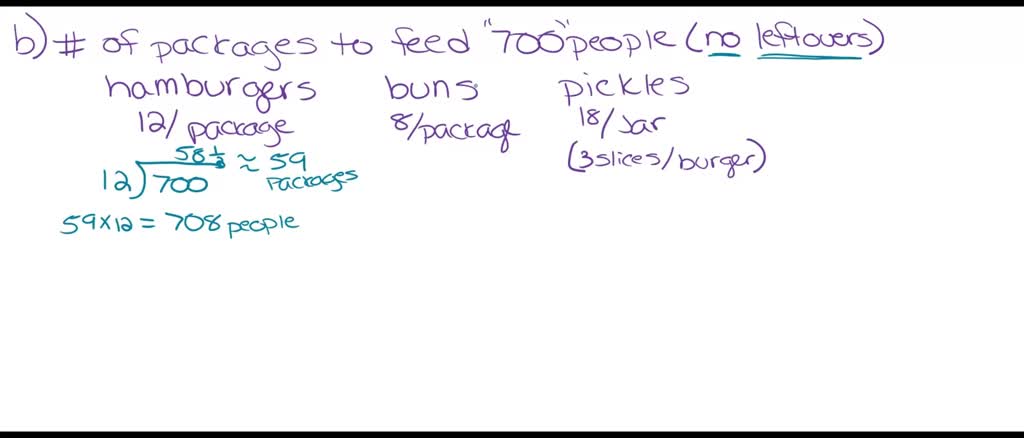 b) # of packages to feed "700" people (no leftovers)
hamburgers buns pickles
12/package 8/package 18/Jar
(3 slices/burger)
58 1/3 ≈ 59 packages
12)700
59 x 12 = 708 people